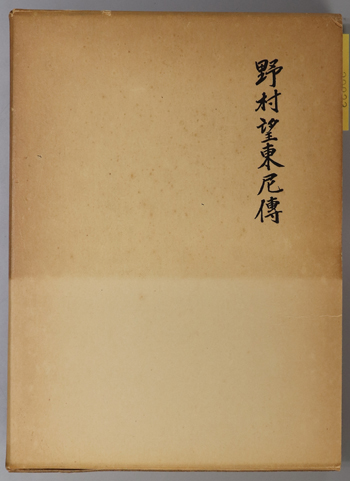 野村望東尼傳